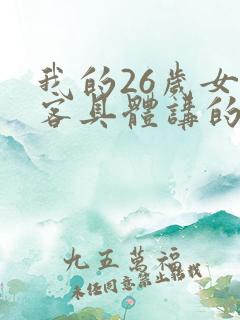 我的26歲女
客具體講的
九五萬福
未經同意禁止轉載